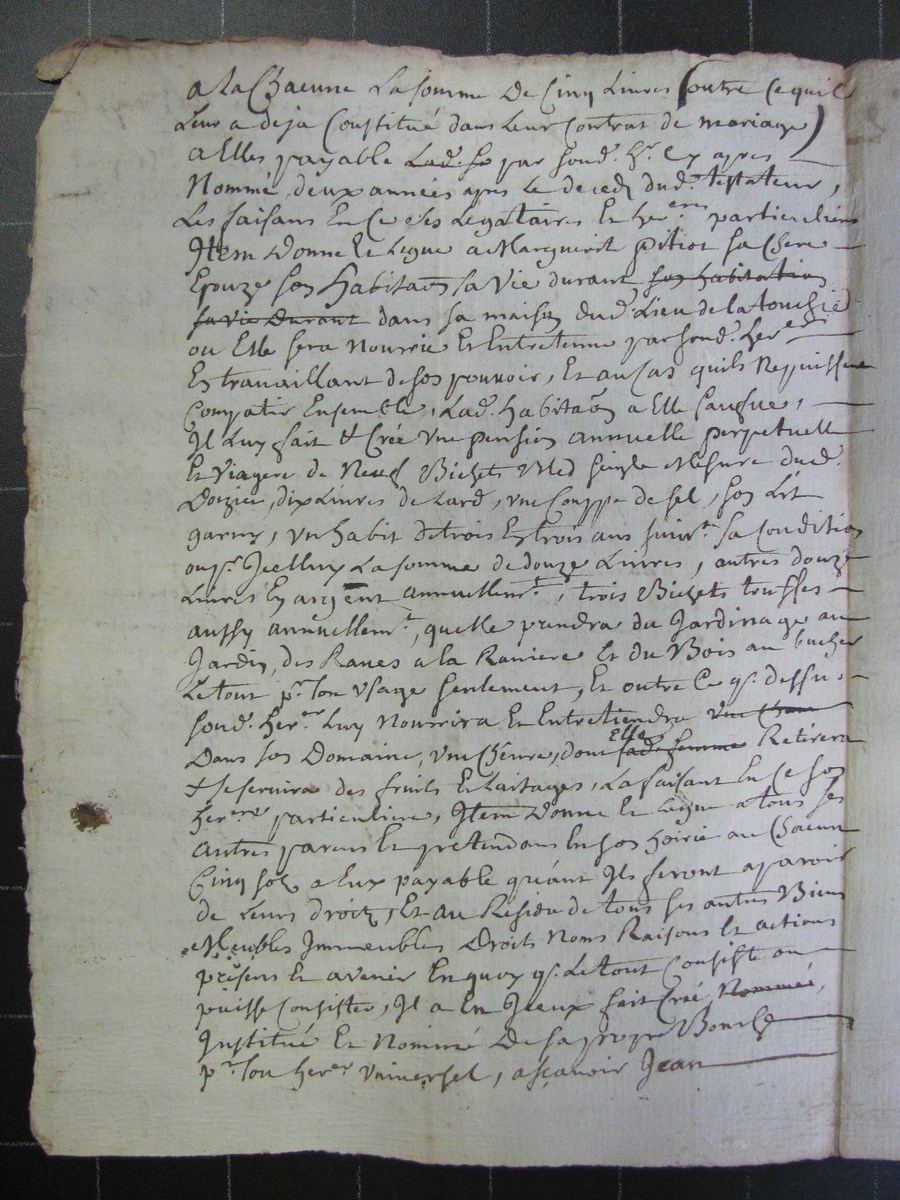 a la Chacune La somme De Cinq Livres (outre Ce quil
Leur a deja Constitué dans Leur Contrat de mariage)
a Elles payable Lad. so par sond. hr. Cy apres
Nommé deux années apres Le deced dud. testateur,
Les faisans En Ce ses Legataires Et her.eres particulieres
Item Donne Et Legue a Marguerit pitiot sa Chere
Epouze son habitaōn sa Vie durant son habitation
sa vie Durant dans sa maison dud. Lieu de la
ou Elle sera Nourrie Et Entretenue par sond. her.er
En travaillant de son pouvoir, Et au Cas quils Ne puissent
Compatir Ensemble, Lad. habitaōn a Elle
Il Luy fait & Crée Une pension annuelle perpetuelle
Et Viagere de Neuf Bichets bled seigle Mesure dud.
dix Livres de Lard, une Couppe de sel, son Lit
garny, un habit de trois En trois ans suivt. sa Condition
ou pr. Icelluy La somme de douze Livres, autres douze
Livres En argent annuellemt., trois Bichets truffes
aussy annuellemt., quelle prendra du Jardinage au
Jardin, des Raves a la Raviere Et du Bois au bucher
Le tout pr. son Usage seulement, Et outre Ce qs. dessus
sond. her.er Luy Nourrira Et Entretiendra une
Dans son Domaine, une Chevre, dont Elle lad. femme Retirera
& se servira des fruits Et Laitages, La faisant En Ce son
her.ere particuliere, Item Donne Et Legue a tous ses
autres parens Et pretendans En son hoirie au Chacun
Cinq sols a Eux payable quant Ils feront aparoir
de Leurs droits, Et au Residu de tous ses autres Biens
Meubles Immeubles Droits Noms Raisons Et actions
présens Et avenir En quoy qs. Le tout Consiste ou
puisse Consister, Il a En Iceux fait Créé Nommé,
Institué Et Nommé De sa propre Bouche
pr. son her.er universel, a sçavoir Jean